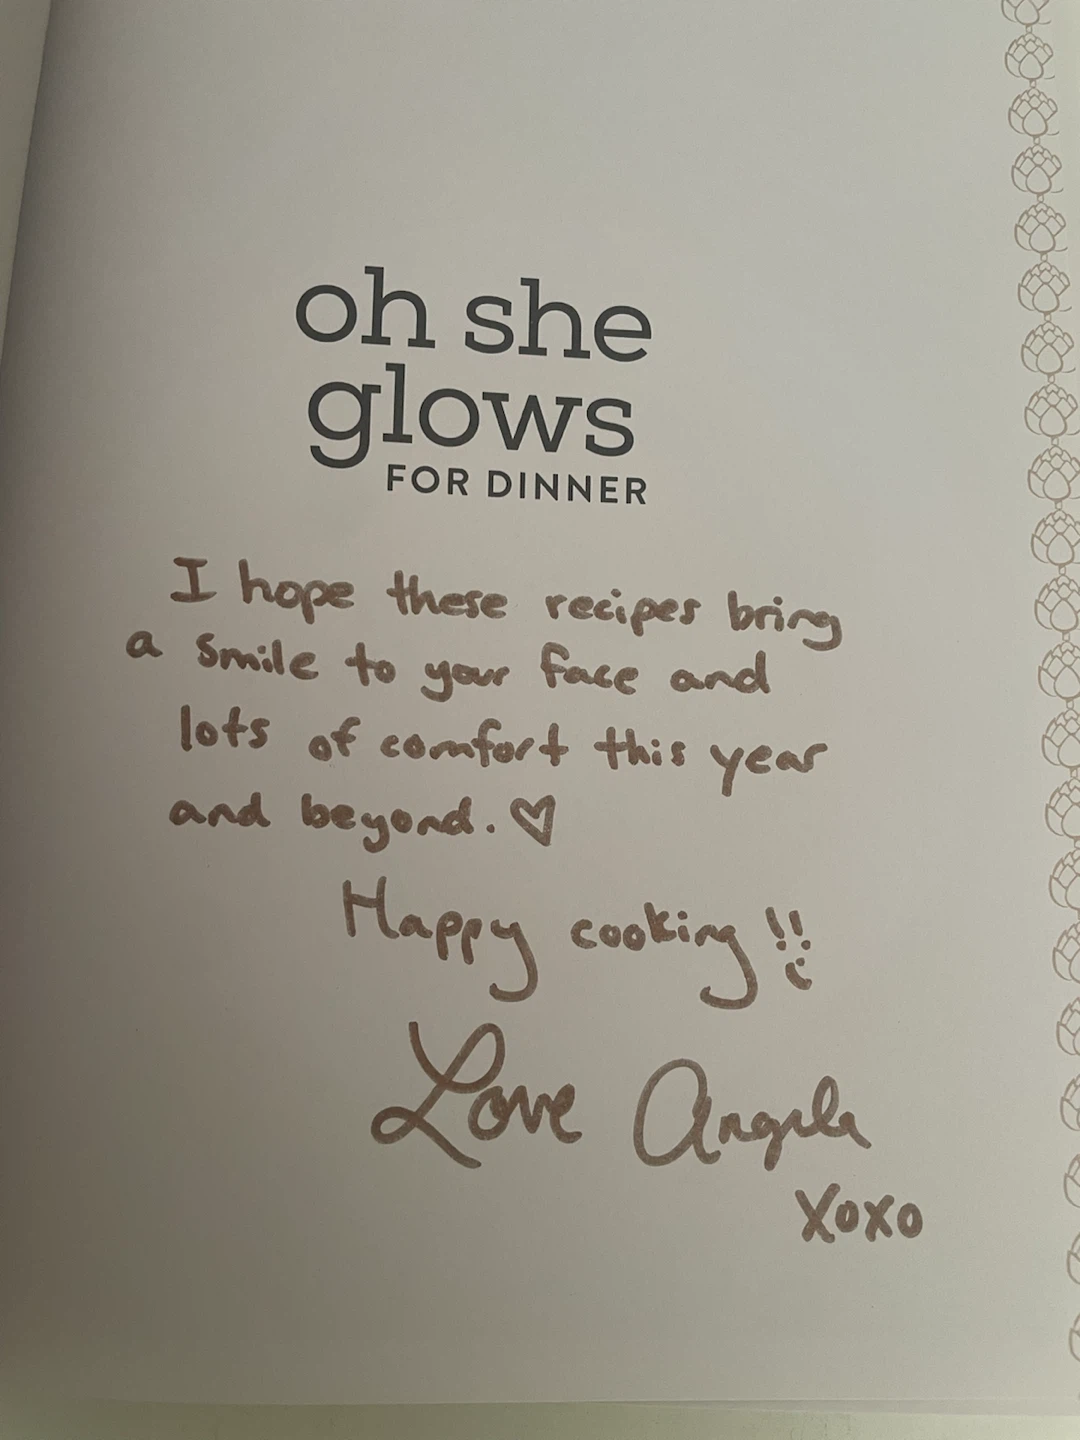 oh she
glows
FOR DINNER
I hope these recipes bring
a smile to your face and
lots of comfort this year
and beyond. ♡
Happy cooking!! :)
Love Angela
XOXO